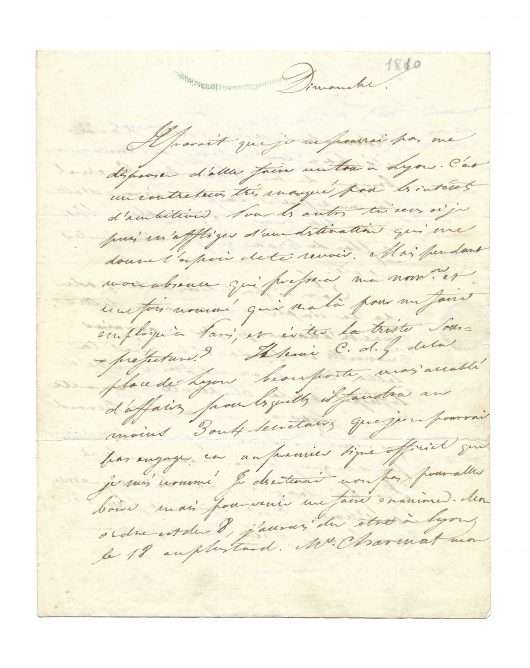 1810
Dimanche.
Il parait que je ne pourrai pas me
dispenser d'aller faire un tour à Lyon. C'est
un contretems très marqué, pour les intérêts
d'ambition. Sous les autres
puis m'affliger d'une destination qui me
donne l'espoir de te revoir. Mais pendant
mon absence qui pressera ma nom.on et
une fois nommé qui sera là pour me faire
employer à Paris, et éviter la triste Sous-
-préfecture? C. d. g. de la
place de Lyon emporte, mais accablé
d'affaires pour lesquelles il faudra au
moins 3 ou 4 secrétaires que je ne pourrai
pas engager car au premier signe officiel que
je suis nommé je déserterai non pas pour aller
boire mais pour venir me faire
ordre est du 8, j'aurais du être à Lyon
le 18 au plus tard. Mr. Charmat mon